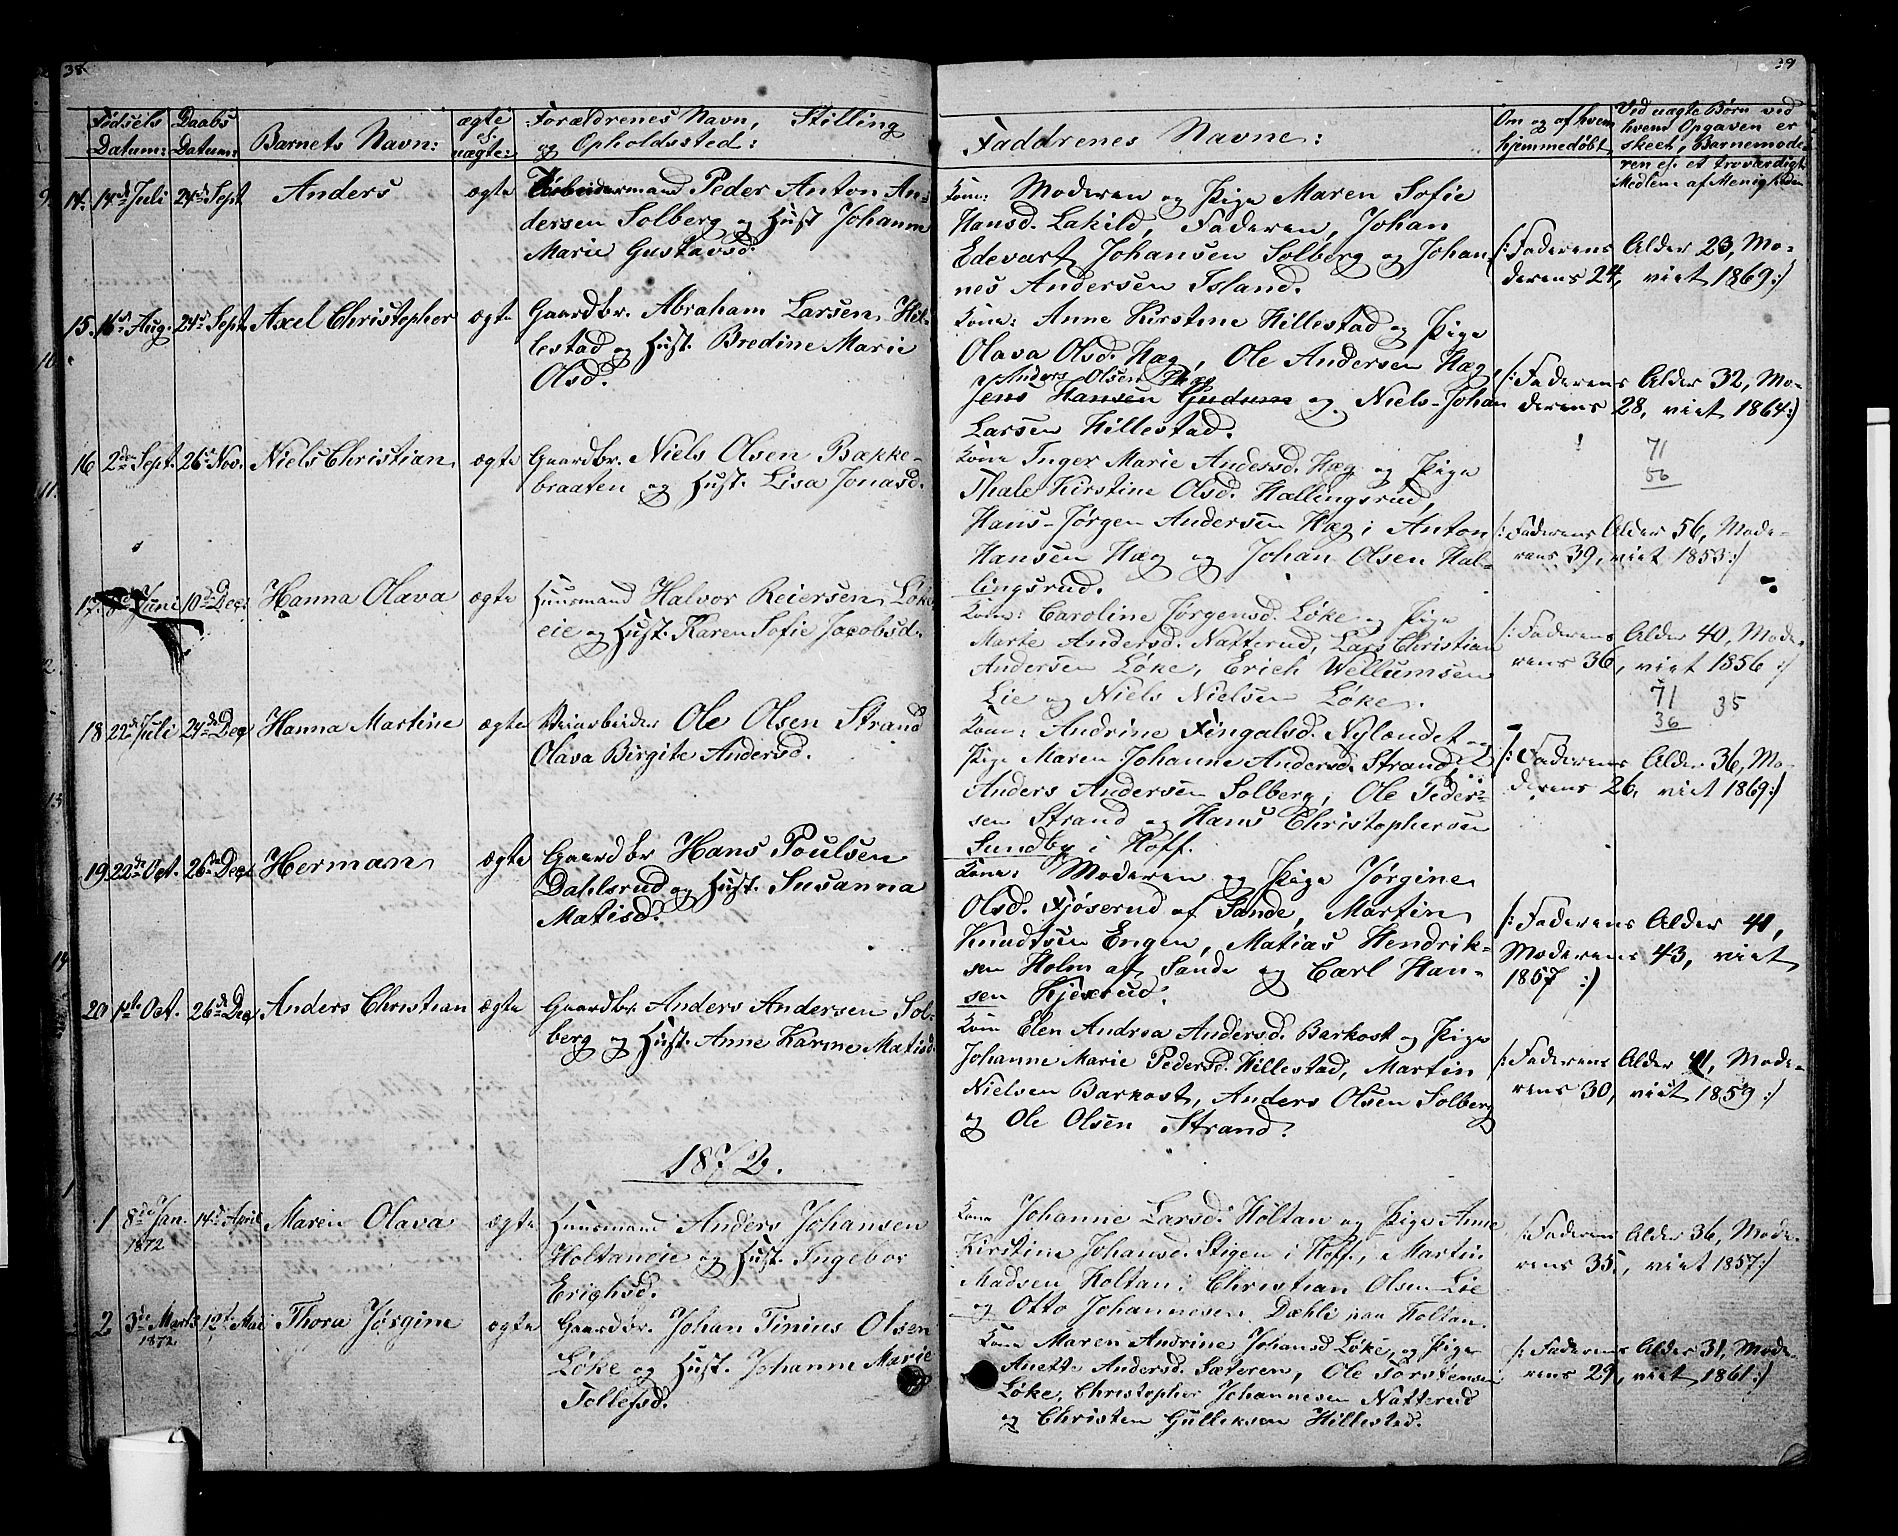 38
Fødsels Datum:
Daabs Datum:
Barnets Navn:
ægte el. uægte:
Forældrenes Navn, Stilling
og Opholdssted:
14. 14de Juli 24de Sept Anders ægte Peder Anton An-
dersen Solberg og Hust. Johanne
Marie Gustavsd.
15. 16de Aug. 24de Sept Axel Christopher ægte Gaardbr. Abraham Larsen Hil-
lestad og Hust. Bredine Marie
Olsd.
16 2den Sept. 26de Nov. Niels Christian ægte Gaardbr. Niels Olsen Bakke-
braaten og Hust. Lisa Jonasd.
17. Juni 10de Dec. Hanna Olava ægte Huusmand Halvor Reiersen Løke
eie og Hust. Karen Sofie Jacobsd.
18 22de Juli 24de Dec Hanna Martine ægte Veiarbeider Ole Olsen Strand
Olava Birgite Andersd.
19. 22de Oct. 26de Dec Herman ægte Gaardbr Hans Poulsen
Dahlsrud og Hust. Susanna
Matisd.
20 1ste Oct. 26de Dec Anders Christian ægte Gaardbr Anders Andersen Sol-
berg og Hust. Anne Karine Matisd.
1872.
1 8de Jan. 1872 14de April Maren Olava ægte Huusmand Anders Johansen
Holtaneie og Hust. Ingebor
Erichsd.
2 3de Marts 1872 12te Mai Thora Jørgine ægte Gaardbr. Johan Tinius Olsen
Løke og Hust. Johanne Marie
Tollefsd.
39
Faddrenes Navne:
Om og af hvem
hjemmedøbt
Ved uægte Børn ved
hvem Opgaven er
skeet, Barnemode-
ren el. et troværdigt
Medlem af Menigheden
Kone: Moderen og Pige Maren Sofie
Hansd. Lakild, Faderen, Johan
Edevart Johansen Solberg og Johan-
nes Andersen Island.
/: Faderens Alder 23, Mo-
derens 24, viet 1869:/
Kone: Anne Kirstine Hillestad og Pige
Olava Olsd. Hæg, Ole Andersen Hæg,
Anders Olsen Hæg
Jens Hansen Gudum og Niels Johan
Larsen Hillestad.
/: Faderens Alder 32, Mo-
derens 28, viet 1864:/
71
56
Kone Inger Marie Andersd. Hæg og Pige
Thale Kirstine Olsd. Hallingsrud,
Hans-Jørgen Andersen Hæg, Anton
Hansen Hæg og Johan Olsen Hal-
lingsrud.
/: Faderens Alder 56, Mode-
rens 39, viet 1853:/
Kone: Caroline Jørgensd. Løke og Pige
Marte Andersd. Natterud, Lars Christian
Andersen Løke, Erich Wellumsen
Lie og Niels Nielsen Løke.
/: Faderens Alder 40, Mode-
rens 36, viet 1856:/
71
36
35
Kone: Andrine Fingalsd. Nylændet og
Pige Maren Johanne Andersd. Strand
Anders Andersen Solberg, Ole Peder-
sen Strand og Hans Christophersen
Sundby i Hoff.
/: Faderens Alder 36, Mo-
derens 26, viet 1869:/
Kone: Moderen og Pige Jørgine
Olsd. Fjøserud af Sande, Martin
Knudtsen Engen, Matias Hendrik-
sen Holm af Sande og Carl Han-
sen Kjexrud.
/: Faderens Alder 41,
Moderens 43, viet
1857:/
Kone Elen Andrea Andersd. Barkost og Pige
Johanne Marie Pedersd. Hillestad, Martin
Nielsen Barkost, Anders Olsen Solberg
og Ole Olsen Strand.
/: Faderens Alder 41, Mode-
rens 30, viet 1859:/
Kone Johanne Larsd. Holtan og Pige Anne
Kirstine Johansd. Stigen i Hoff, Martin
Madsen Holtan, Christian Olsen Lie
og Otto Johannesen Dæhli paa Holtan.
/: Faderens Alder 36, Mode-
rens 35, viet 1857:/
Kone Maren Andrine Johansd Løke, og Pige
Anette Andersd. Sæteren, Ole Torstensen
Løke, Christopher Johannesen Natterud
og Christen Gulliksen Hillestad.
/: Faderens Alder 31, Mode-
rens 29, viet 1861:/